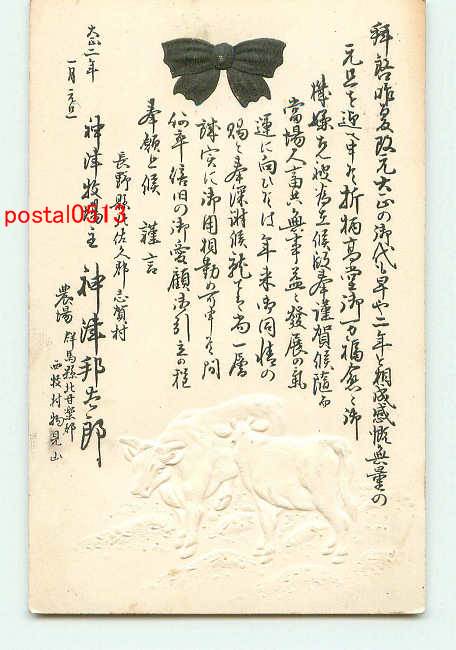 拝啓昨夏改元大正の御代も早や二年と相成感慨無量の
元旦を迎へ申候折柄高堂御一方福愈々御
機嫌克被為在候段奉謹賀候随而
當場人畜共無事益々發展の氣
運に向ひ候は年来御同情の
賜と奉深謝候就ては尚一層
誠實に御用相勤め可申候間
何卒倍旧の御愛顧御引立の程
奉願上候 謹言
大正二年
一月元旦
長野縣北佐久郡志賀村
神津牧場主 神津邦太郎
農場 群馬縣北甘楽郡
西牧村物見山
postal0513